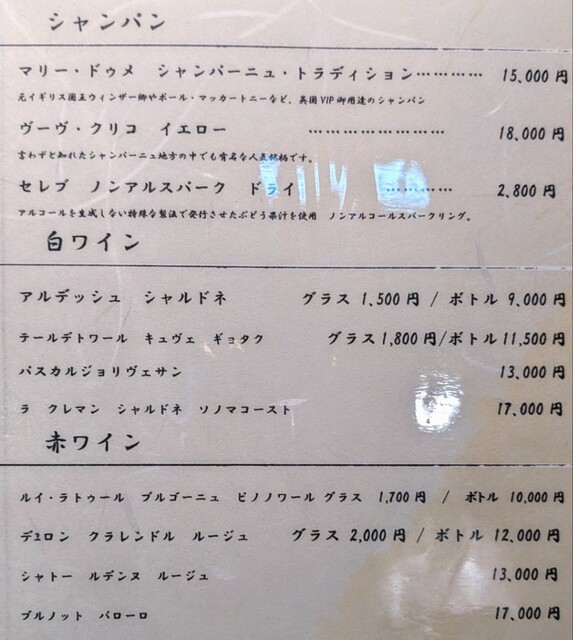 シャンパン
マリー・ドゥメ シャンパーニュ・トラディション………… 15,000 円
元イギリス国王ウィンザー卿やポール・マッカートニーなど、英国VIP御用達のシャンパン
ヴーヴ・クリコ イエロー …………………… 18,000 円
言わずと知れたシャンパーニュ地方の中でも有名な人気銘柄です。
セレブ ノンアルスパーク ドライ ………… 2,800 円
アルコールを生成しない特殊な製法で発行させたぶどう果汁を使用 ノンアルコールスパークリング。
白ワイン
アルデッシュ シャルドネ グラス 1,500 円 / ボトル 9,000 円
テールデトワール キュヴェ ギョタク グラス 1,800 円/ボトル 11,500 円
パスカルジョリヴェサン 13,000 円
ラ クレマン シャルドネ ソノマコースト 17,000 円
赤ワイン
ルイ・ラトゥール ブルゴーニュ ピノノワール グラス 1,700 円 / ボトル 10,000 円
デュロン クラレンドル ルージュ グラス 2,000 円 / ボトル 12,000 円
シャトー ルデンヌ ルージュ 13,000 円
プルノット バローロ 17,000 円